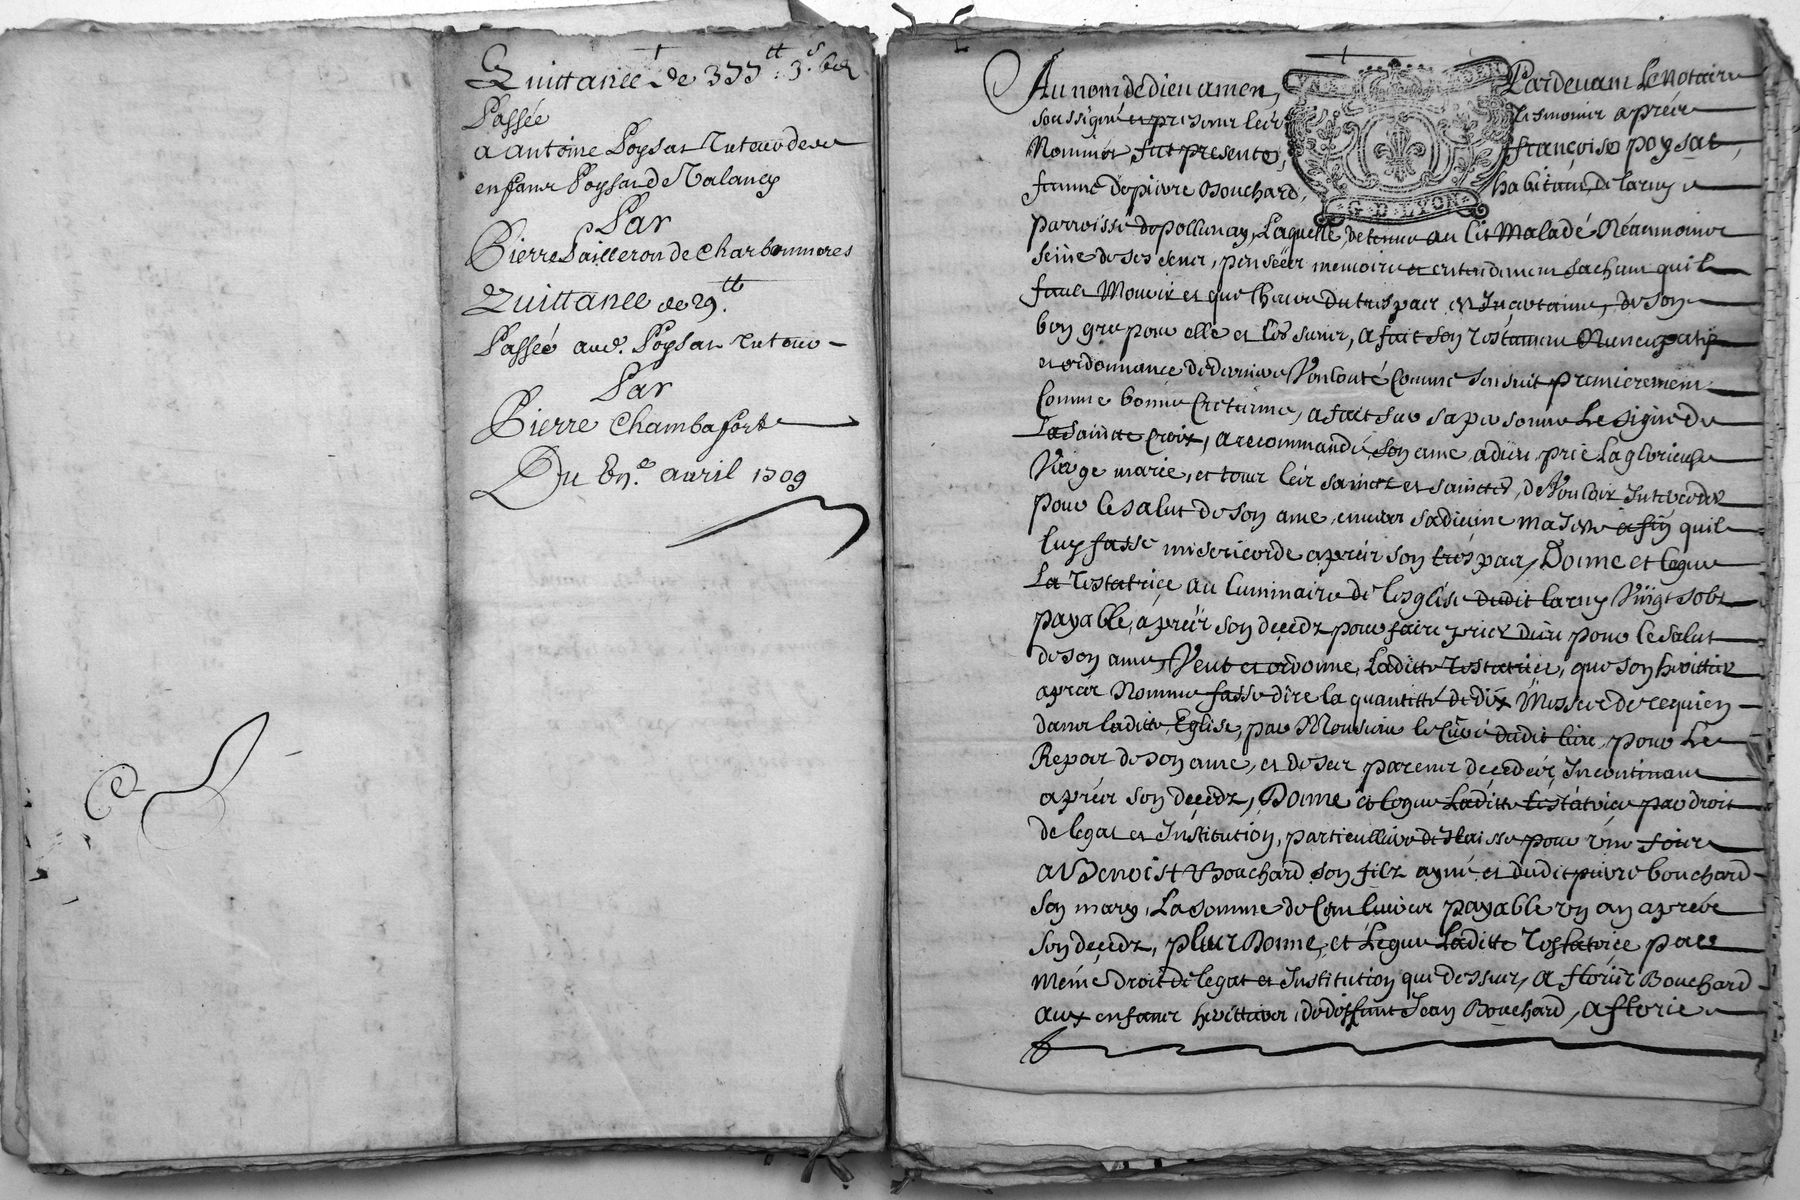 Quittance de 377ᵗᵗ: 3ˢ 6d
Passée
a antoine Poysat Tuteur de
enfans Poysat de Talancy
Par
Pierre Pailleron de Charbonnieres
Quittance de 29ᵗᵗ
Passée aud. Poysat Tuteur
Par
Pierre Chambafort
Du avril 1709
Au nom de dieu amen, Pardevant Le Notaire
soussigné et presens les tesmoins apres
Nommés fut presente, françoise poysat,
femme de pierre Bouchard, habitant de larny
parroisse de pollionay, Laquelle detenue au lit Malade Neammoins
seine de ses sens, pensées memoire et entendement sachant quil
faut Mourir et que lheure du trespas est Incertaine, de son
bon gré pour elle et les siens, a fait son testament Nuncupatif
et ordonnance de derniere Vollonté Comme sensuit premierement
Comme bonne Cretienne, a fait sur sa personne Le signe de
La saincte Croix, a recommandé son ame a dieu prie La glorieuse
Vierge marie, et tous les saincts et sainctes, de Vouloir Interceder
pour le salut de son ame, envers sa divine Majesté afin quil
luy fasse misericorde apres son trespas, Donne et legue
La testatrice au luminaire de lesglise dudit larny Vingt sols
payable, apres son decedz pour faire prier dieu pour le salut
de son ame, Veut et ordonne, Laditte testatrice, que son heritier
apres Nommé fasse dire la quantitté de dix Messes de requien
dans laditte Eglise, par Monsieur le Curé dudit lieu, pour Le
Repos de son ame, et de ses parens decedés, Incontinant
apres son decedz, Donne et legue Laditte testatrice par droit
de legat et Institution, particulliere delaisse pour une foire
a Benoist Bouchard son filz ayné et dudit pierre bouchard
son mary, La somme de Cent livres payable un an apres
son decedz, plus Donne, et Legue Laditte Testatrice par
Méme droit de legat et Institution que dessus, a Bouchard
aux enfans herittiers, de deffunt Jean Bouchard, a florie